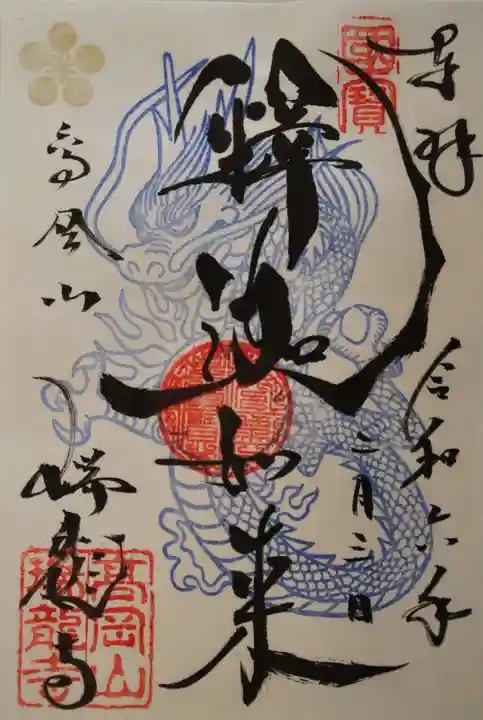 奉拝
令和六年
二月三日
國寶
釋迦如来
高岡山
瑞龍寺
高岡山
瑞龍寺